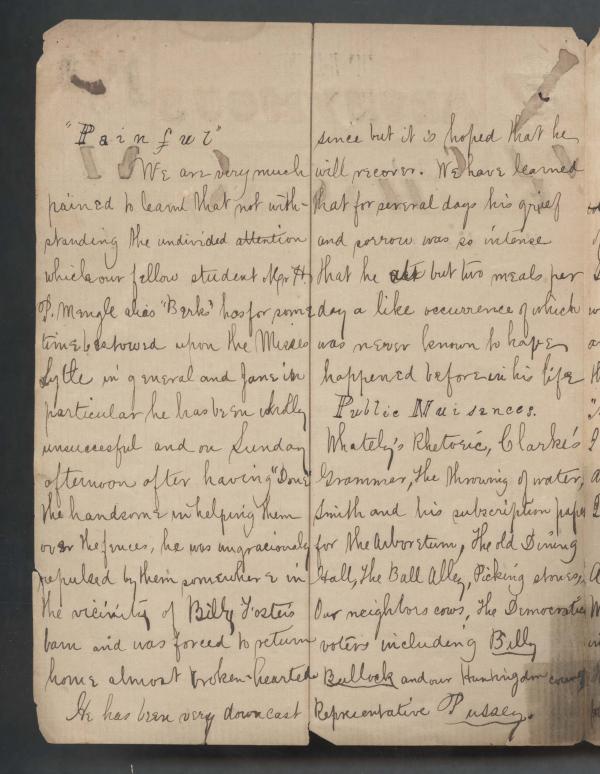 "Painful"
We are very much
pained to learn that not with-
standing the undivided attention
which our fellow student Mr H.
P. Mengle alias "Berks" has for some
time bestowed upon the Misses
Lytle in general and Jane in
particular he has been wholly
unsuccesful and on Sunday
afternoon after having "Done"
the handsome in helping them
over the fences, he was ungraciously
repulsed by them somewhere in
the vicinity of Billy Foster's
barn and was forced to return
home almost broken-hearted
He has been very downcast
since but it is hoped that he
will recover. We have learned
that for several days his grief
and sorrow was so intense
that he ate but two meals per
day a like occurrence of which
was never known to have
happened before in his life
Public Nuisences.
Whately's Rhetoric, Clarke's
Grammar, The throwing of water,
Smith and his subscription paper
for the Arboretum, The old Dining
Hall, The Ball Alley, Picking stones,
Our neighbors cows, The Democratic
voters including Billy
Bullock and our Huntingdon county
Representative Pussey.